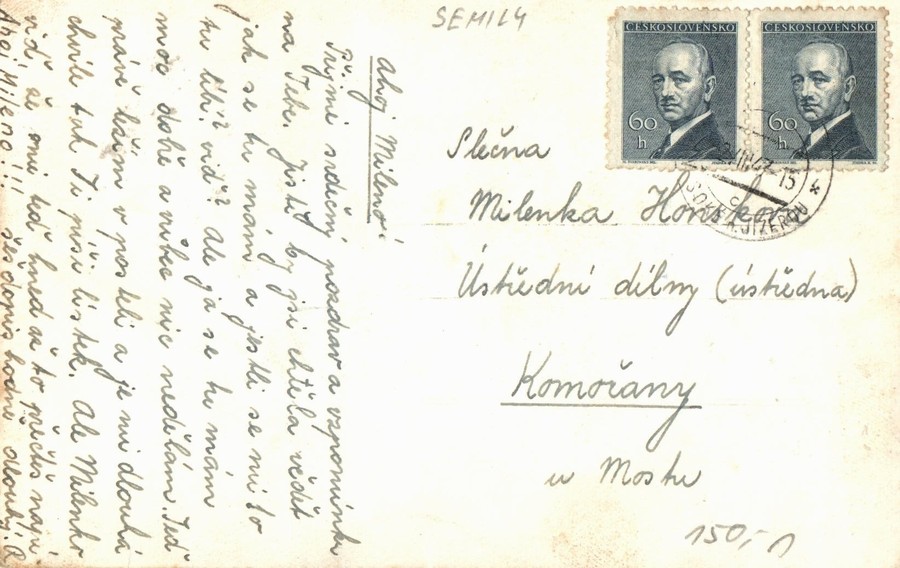 SEMILY
ČESKOSLOVENSKO
ČESKOSLOVENSKO
60 h
60 h
15
JIZEROU
Slečna
Milenka
Ústřední dílny (ústředna)
Komořany
u Mostu
150,-
Ahoj Mileno!
Přijmi srdeční pozdrav a vzpomínku
na Tebe. Jistě by jsi chtěla vědět
jak se tu mám a jestli se mi to
tu líbí viď? ale já se tu mám
moc dobře a vůbec nic nedělám. Teď
právě ležím v posteli a je mi dlouhá
chvíle tak Ti píši lístek. Ale Milenko
viď, že mi hned až to přečteš
Ahoj Mileno!!! hodně dlouhý.